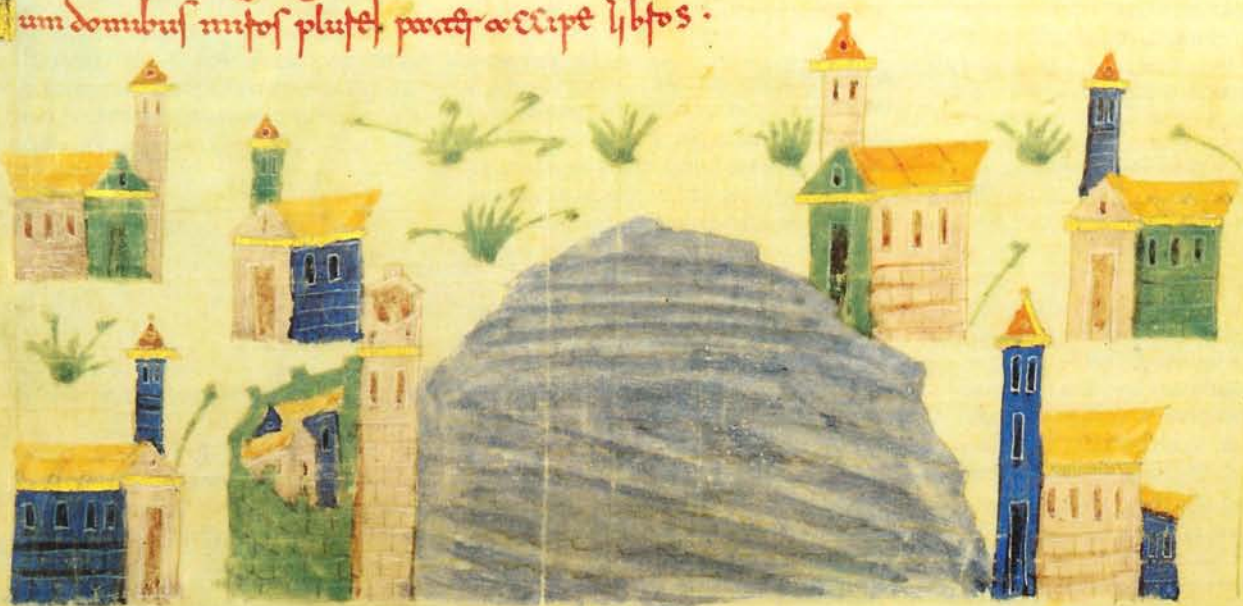 um domibus miros plures pater accipe libros.